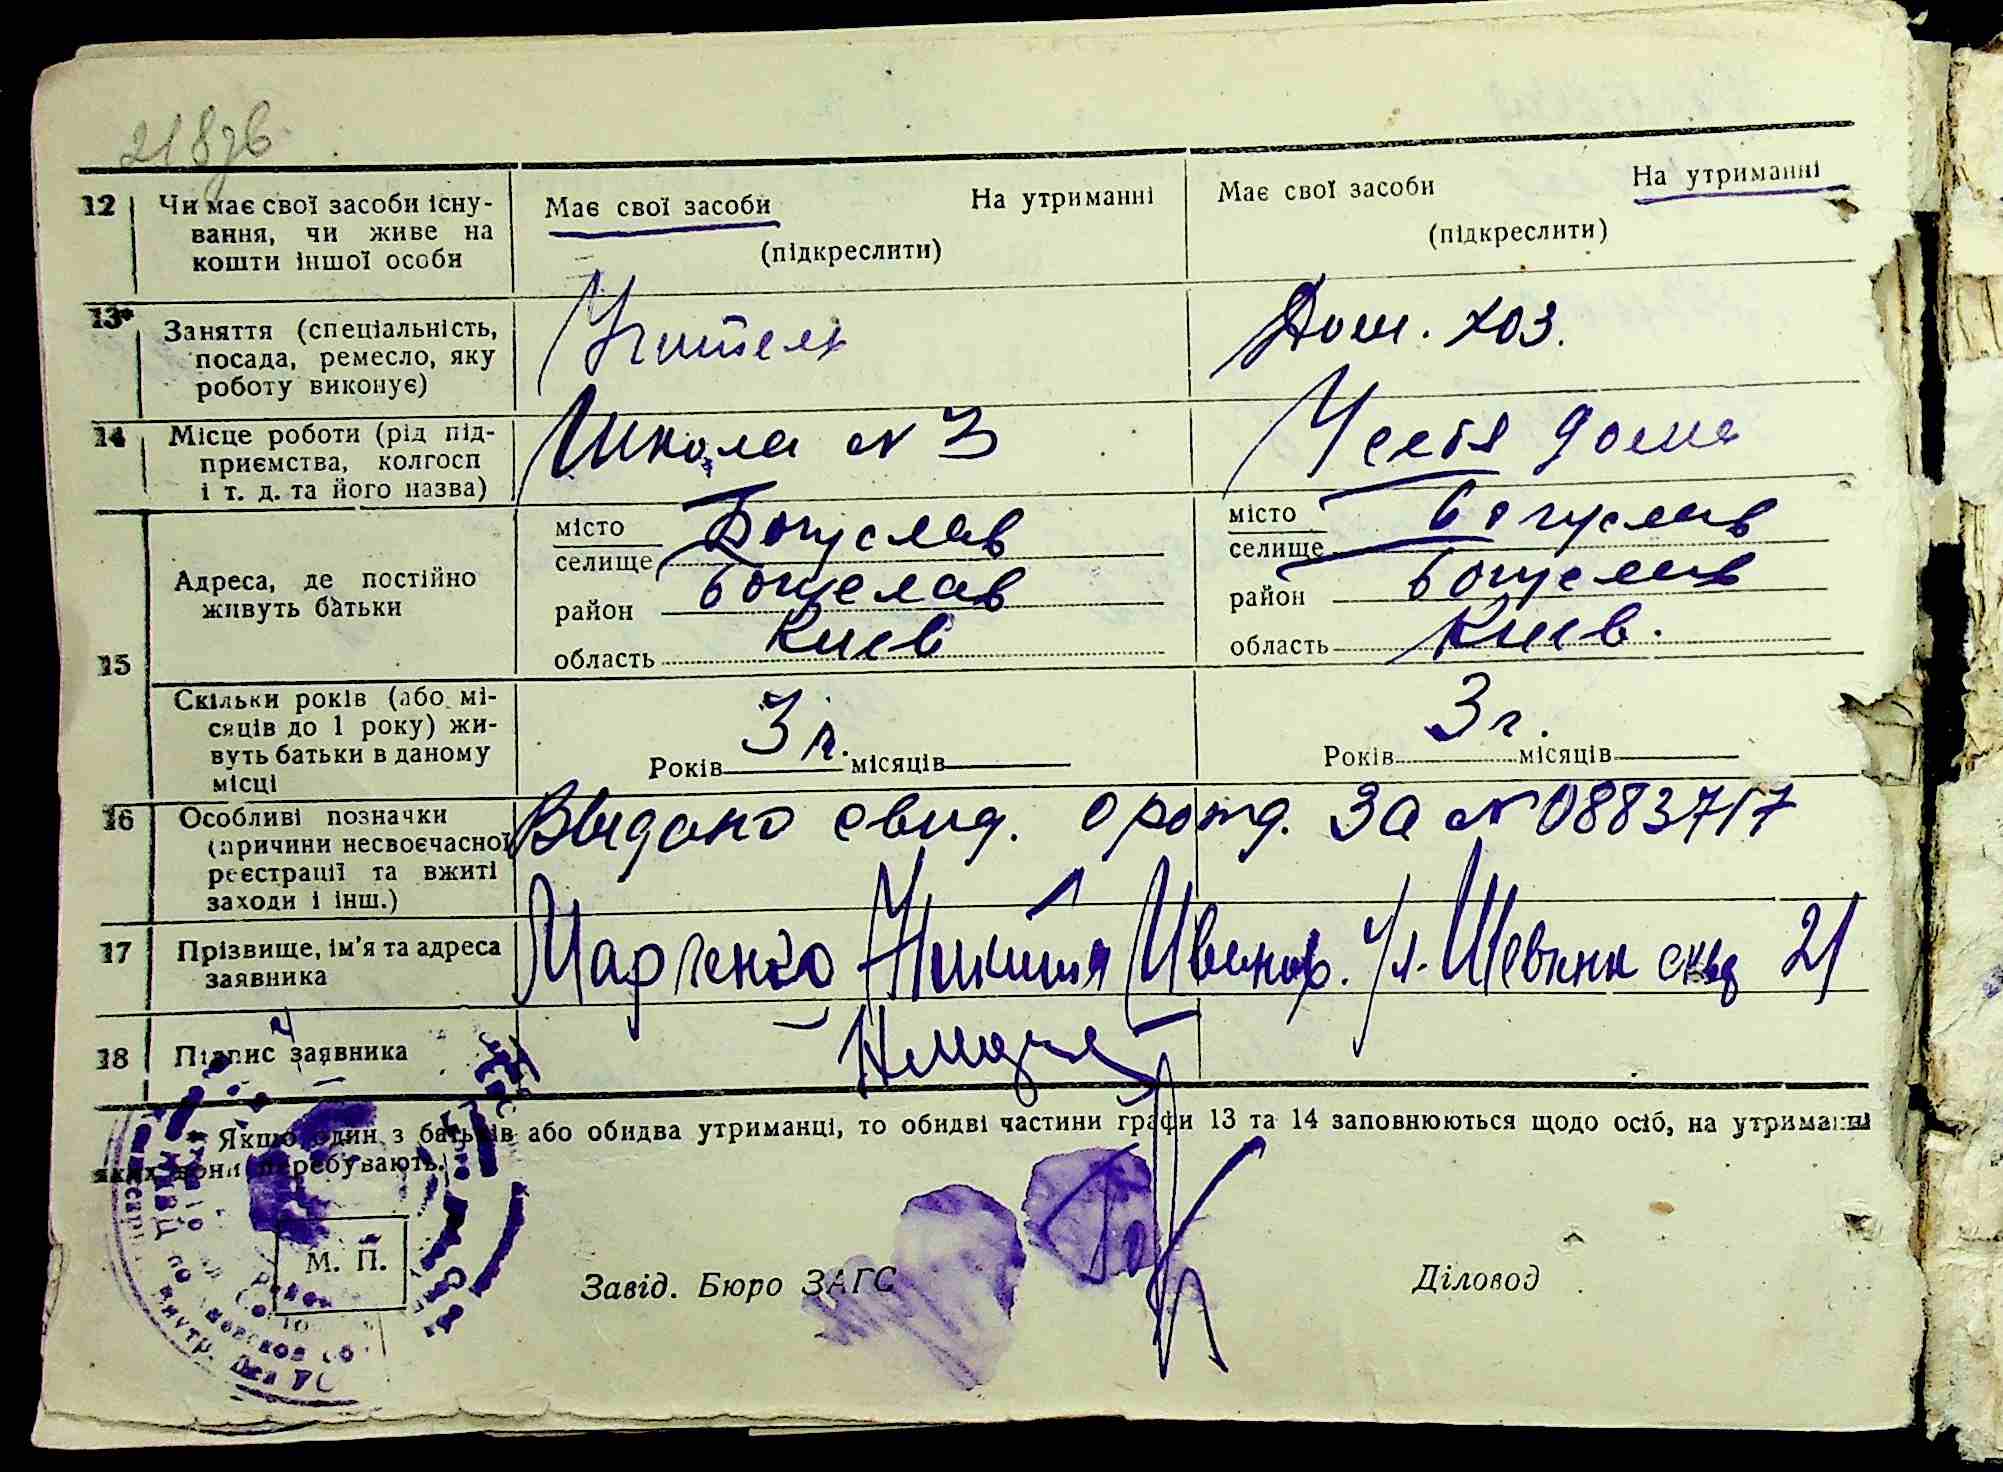 218зв
12 Чи має свої засоби існу-
вання, чи живе на
кошти іншої особи
Має свої засоби На утриманні
(підкреслити)
Має свої засоби На утриманні
(підкреслити)
13* Заняття (спеціальність,
посада, ремесло, яку
роботу виконує)
Учитель
Дом. хоз.
14 Місце роботи (рід під-
приємства, колгосп
і т. д. та його назва)
Школа № 3
У себя дома
15 Адреса, де постійно
живуть батьки
місто Богуслав
селище
район Богуслав
область Киев
місто Богуслав
селище
район Богуслав
область Киев.
Скільки років (або мі-
сяців до 1 року) жи-
вуть батьки в даному
місці
3 г.
Років місяців
3 г.
Років місяців
16 Особливі позначки
(причини несвоєчасної
реєстрації та вжиті
заходи і інш.)
Видано свид. о рожд. ЗА № 0883717
17 Прізвище, ім'я та адреса
заявника
Марченко Никита Иванов. Ул. Шевченковск 21
18 Підпис заявника
* Якщо один з батьків або обидва утриманці, то обидві частини графи 13 та 14 заповнюються щодо осіб, на утриманні
яких вони перебувають.
М. П.
Завід. Бюро ЗАГС
Діловод